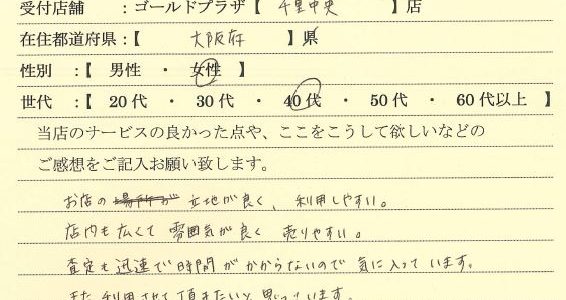 受付店舗 :ゴールドプラザ【 千里中央 】店
在住都道府県:【 大阪府 】県
性別 :【 男性 ・ 女性 】
世代 :【 20代 ・ 30代 ・ 40代 ・ 50代 ・ 60代以上 】
当店のサービスの良かった点や、ここをこうして欲しいなどの
ご感想をご記入お願い致します。
お店の場所が立地が良く、利用しやすい。
店内も広くて 雰囲気が良く 売りやすい。
査定も迅速で時間がかからないので 気に入っています。
また利用させて頂きたいと思っています。